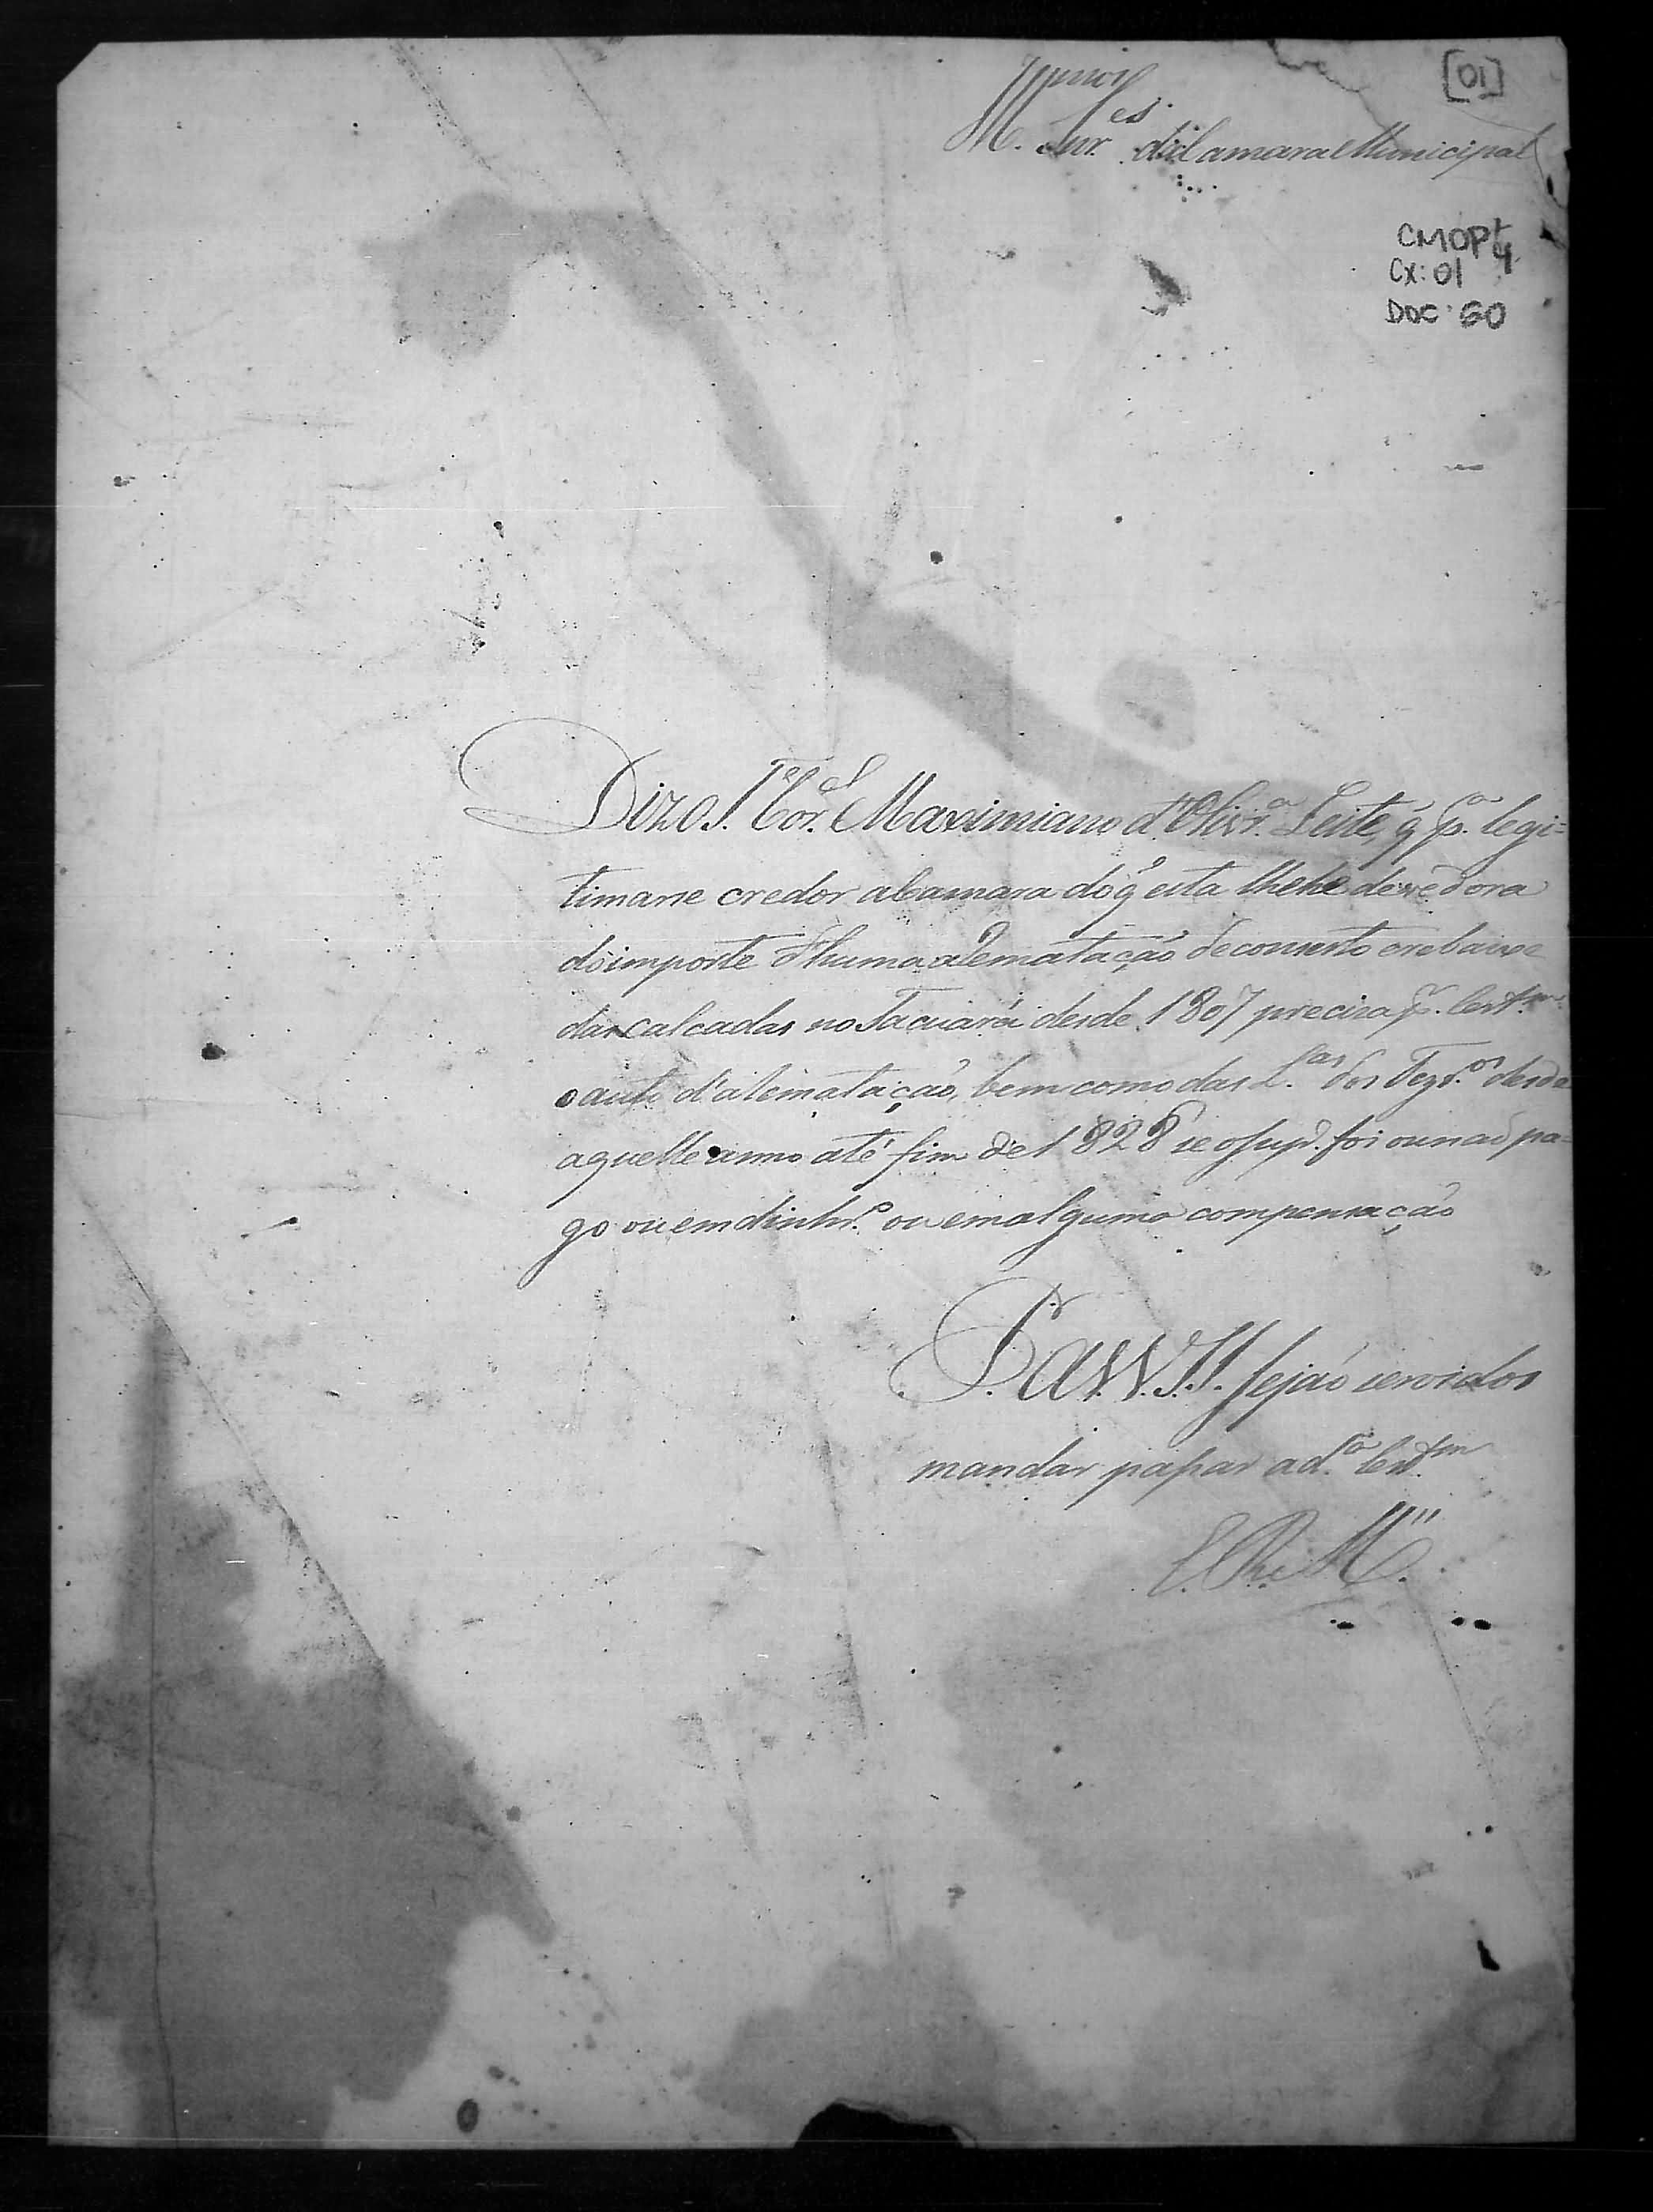 [01]
Illmos
M. Snres. da Camara Municipal
CMOP 4
Cx: 01
DOC: 60
Diz o T.e Cor.el Maximiano d'Olivr.a Leite, q̃ p.a legi=
timarse credor a Camara do q̃ esta lhe he devedora
do importe d'huma arematação de conserto e rebaixe
das calcadas no Tacuará desde 1807 precisa p.r Cert.m
o auto d'arematação, bem como das L.as dos Tezr.os desde
aquelle anno até fim de 1828 se o Sup.e foi ou não pa=
go ou em dinhr.o ou em alguma compensação
P. a V.V. S.S. sejão servidos
mandar passar a d.a Cert.m
E. R. M.